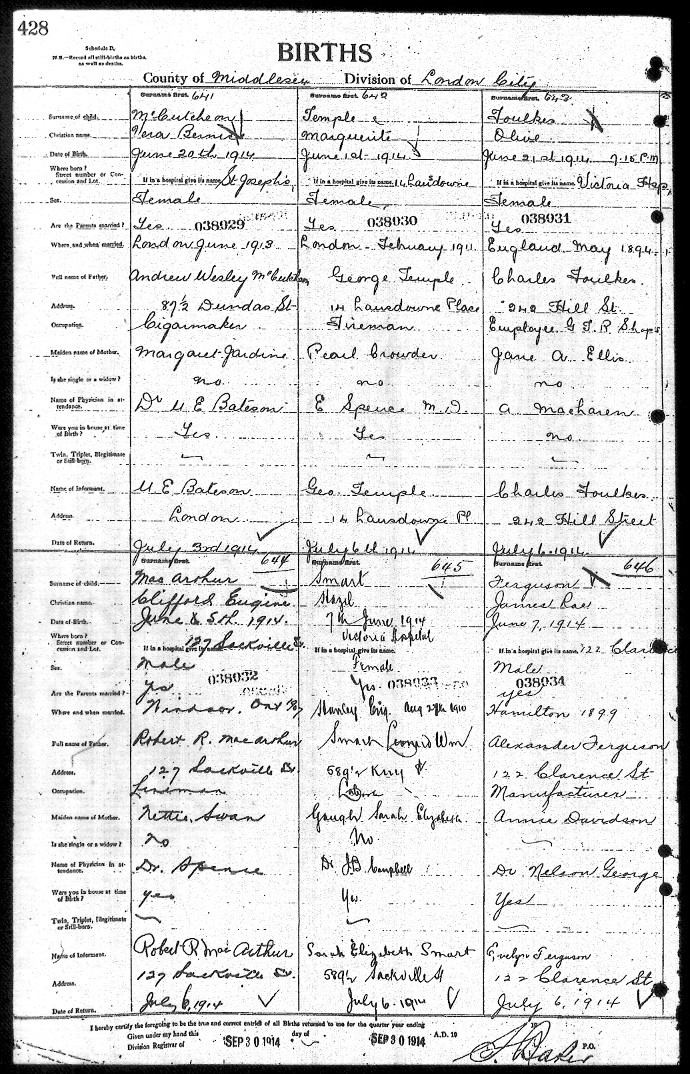 428
Schedule D.
N.B.—Record all still-births as births, as well as deaths.
BIRTHS
County of Middlesex Division of London City
Surname first. 641 Surname first. 642 Surname first. 643
Surname of child. McCutcheon Temple Foulkes
Christian name. Vera Bernice Marguerite Olive
Date of Birth. June 20th 1914 June 1st 1914 June 21st 1914 7.15 P.M.
Where born? Street number or Concession and Lot. If in a hospital give its name. St Joseph's If in a hospital give its name. 14 Lansdowne If in a hospital give its name. Victoria Hosp,
Sex. Female Female Female
Are the Parents married? Yes 038029 Yes 038030 Yes 038031
Where and when married. London June 1913 London February 1911 England May 1894
Full name of Father. Andrew Wesley McCutcheon George Temple Charles Foulkes
Address. 87½ Dundas St 14 Lansdowne Place 242 Hill St.
Occupation. Cigarmaker Fireman Employee G.T.R Shops
Maiden name of Mother. Margaret Jardine Pearl Crowder Jane A Ellis
Is she single or a widow? no no no
Name of Physician in attendance. Dr U E Bateson E Spence M.D. A Maclaren
Were you in house at time of Birth? Yes Yes no.
Twin, Triplet, Illegitimate or Still-born.
Name of Informant. U E Bateson Geo Temple Charles Foulkes
Address. London 14 Lansdowne Pl 242 Hill Street
Date of Return. July 3rd 1914 July 6th 1914 July 6 1914
Surname first. 644 Surname first. 645 Surname first. 646
Surname of child. Mac Arthur Smart Ferguson
Christian name. Clifford Eugene Hazel James Rae
Date of Birth. June 5th 1914. 7th June, 1914 June 7, 1914
Where born? Street number or Concession and Lot. If in a hospital give its name. 127 Sackville St. Victoria Hospital If in a hospital give its name. 122 Clarence
Sex. Male Female Male
Are the Parents married? yes 038032 Yes 038033 yes 038034
Where and when married. Windsor, Ont Stanley Eng. Aug 27th 1910 Hamilton 1899
Full name of Father. Robert R. MacArthur Smart Leonard Wm Alexander Ferguson
Address. 127 Sackville St. 589½ King St 122 Clarence St
Occupation. Lineman Labore Manufacturer
Maiden name of Mother. Nettie Swan Gough Sarah Elizabeth Annie Davidson
Is she single or a widow? No No
Name of Physician in attendance. Dr. Spence Dr JB Campbell Dr Nelson George
Were you in house at time of Birth? yes Yes Yes
Twin, Triplet, Illegitimate or Still-born.
Name of Informant. Robert R. Mac Arthur Sarah Elizabeth Smart Evelyn Ferguson
Address. 127 Sackville St. 589½ Sackville St 122 Clarence St
Date of Return. July 6, 1914 July 6 1914 July 6, 1914
I hereby certify the foregoing to be the true and correct entries of all Births returned to me for the quarter year ending
Given under my hand this day of SEP 30 1914 SEP 30 1914 A.D. 19
Division Registrar of S. Baker P.O.